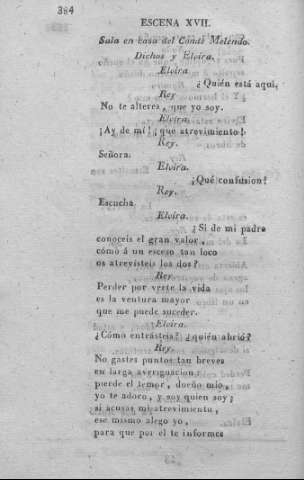 384
ESCENA XVII.
Sala en casa del Conde Melendo.
Dichos y Elvira.
Elvira
¿Quién está aqui,
Rey
No te alteres, que yo soy.
Elvira.
¡Ay de mí! ¡que atrevimiento!
Rey.
Señora.
Elvira.
¡Qué confusion!
Rey.
Escucha.
Elvira.
¿Si de mi padre
conoceis el gran valor,
cómo á un esceso tan loco
os atrevísteis los dos?
Rey
Perder por verte la vida
es la ventura mayor
que me puede suceder.
Elvira.
¿Cómo entrásteis? ¿quién abrió?
Rey.
No gastes puntos tan breves
en larga averiguacion:
pierde el temor, dueño mio,
yo te adoro, y soy quien soy;
si acusas mi atrevimiento,
ese mismo alego yo,
para que por él te informes